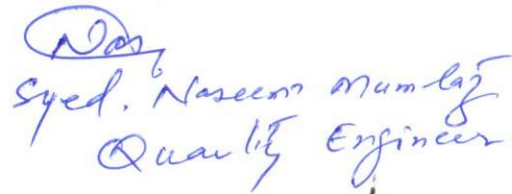 Syed. Naseem Mumtaz
Quality Engineer